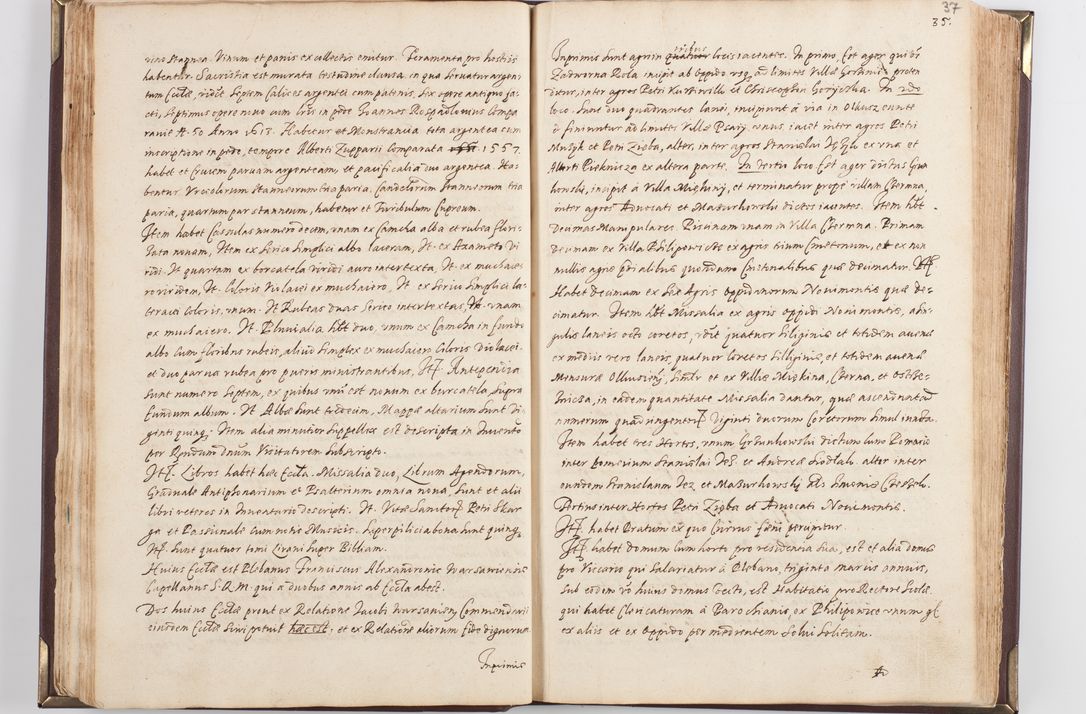 vino stannea. Vinum et panis ex collectis emitur. Feramenta pro hostiis
habentur. Sacristia est murata testudine clausa, in qua servatur argen
tum Ecclae, videlt Septem Calices argentei cum patenis, Sex opere antiquo fa-
cti, Septimus opere novo cum lris in pede Joannes
Anno 1613. Habetur et Monstrantia tota argentea cum
inscriptione in pede, tempore Alberti Zupparii Comparata 1557.
habet et Crucem parvam argenteam, et pacificalia duo argentea. Ha-
bentur Vrceolorum stanneorum tria paria. Candelabrum stanneorum tria
paria, quartum par stanneum, habetur et Turibulum Cupreum.
Item habet Casulas numero decem, unam ex Camcha alba et rubea flori-
sata novam, Item ex Serico Simplici albo laceram, It. ex Axameto Vi
ridi. It quartam ex borcatela viridi auro intertexta, It. ex muchaie-
ro viridem, It. Coloris Violacei ex muchaiero, It. ex Serico Simplici la-
teracei Coloris, unum. It Rubeas duas Serico intertextas, It. unam
ex muchaiero. It. Pluvialia hbt duo, unum ex Camcha in fundo
albo cum floribus rubeis, aliud Simplex ex muchaiero Coloris violacei.
et duo parva rubea pro pueris ministrantibus, It. Antependia
sunt numero Septem, ex quibus unū est novum ex burcatela Supra
fundum album. It Albae sunt tredecim, Mappae altarium sunt Vi-
ginti quinq. Item alia minutior Suppellex est descripta in Invento
per Rndum dnum Visitatorem Subscripto.
It. Libros habet haec Eccla. Missalia duo, Librum Agendorum,
Graduale Antiphonarium et Psalterium omnia nova, sunt et alii
libri veteres in Inventario descripti. It. Vitae Sanctorū Petri Skar
ga et Passionale cum notis Musicis. Superpilicia bona sunt quinq
It. sunt quatuor tomi Lirani Super Bibliam.
Huius Ecclae est Plebanus Franciscus
Capellanus S.R.M. qui a duobus annis ab Eccla abest.
Dos huius Ecclae prout ex Relatione Jacobi Commendarii
eiusdem Ecclae Sciri potuit haec est, et ex Relatione aliorum fide dignorum
Inprimis
37
35.
Inprimis sunt agri in tribus locis iacentes. In primo, Est ager qui dr
Zadworna Rola incipit ab Oppido usq ad limites Villae proten
ditur, inter agros Petri et Christophori. In 2do
loco. Sunt duo quadrantes lanei, incipiunt à via in Olkusz eunte
et finiuntur ad limites Villae Psary. unus iacet inter agros Petri
Muzyk et Petri Zięba, alter, inter agros Stanislai ex una et
Alberti ex altera parte. In tertio loco Est ager dictus
incipit à Villa et terminatur prope villam Czerna,
inter agros Advocati et Mazurkowski dictos iacentes. Item hbt
Decimas Manipulares Piscinam unam in Villa Czerna. Primam
Decimam ex Villa Philipowice ex agris trium Cmetonum, et ex non
nullis agris prdialibus quondam Cmetonalibus quae decimatur. It
Habet Decimam ex Sex Agris Oppidanorum Novimontis quae de-
cimatur. Item hbt Missalia ex agris Oppidi Novimontis, à sin-
gulis laneis octo coretos, vdlt quatuor Siliginis et totidem avenae
ex mediis vero laneis, quatuor Coretos Siliginis, et totidem avenae
Mensurae Olkusien, Similr et ex Villis Czerna, et
in eadem quantitate Missalia dantur, quae ascendunt ad
numerum quadringentorū Viginti duorum Coretorum Simul iuncta.
Item habet tres Hortos, unum dictum cum Pomario
inter pomarium Stanislai Jez. et Andreae alter inter
eundem Stanislaum Jez et Mazurkowski
Tertius inter Hortos Petri Zięba et Advocati Novimontis.
It. habet Pratum ex quo Currus faeni percipitur.
It. habet domum cum horto pro residentia sua, est et alia domus
pro Vicario qui Salariatur à Plebano, triginta marcis annuis,
Sub eodem vo huius domus tecto, est Habitatio pro Rectore Scolae
qui habet Clericaturam à Parochianis, ex Philipowice unum
ex aliis et ex Oppido per medietatem Solvi Solitam.